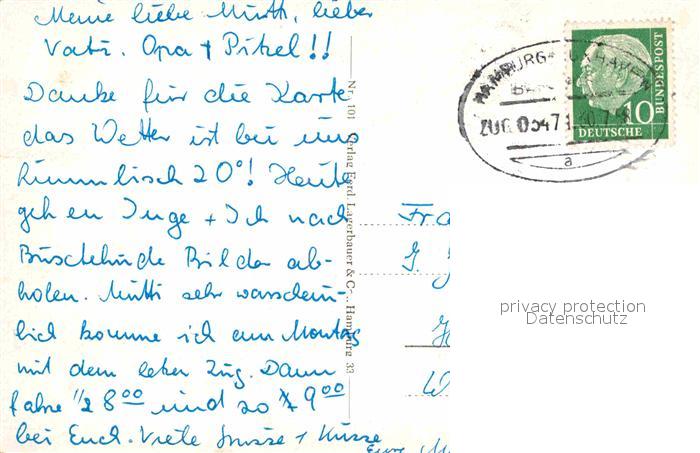 Meine liebe Mutti, lieber
Vati. Opa + Pitzel!!
Danke für die Karte
das Wetter ist bei uns
himmlisch 20°! Heute
gehen Inge + Ich nach
Buxtehude Bilder ab-
holen. Mutti sehr warschein-
lich komme ich am Montag
mit dem letzten Zug. Dann
fahre ½ 8⁰⁰ und so 9⁰⁰
bei Euch. Viele Grüsse + Küsse
Eure
Nr. 101 Verlag Ferd. Lagerbauer & C... Hamburg 33
HAMBURG-CUXHAVEN
ZUG 0547
a
10
DEUTSCHE
BUNDESPOST
privacy protection
Datenschutz